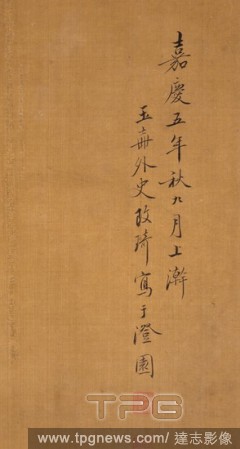 嘉慶五年秋九月上澣
玉壺外史改琦寫于澄園
TPG
www.tpgnews.com / 達志影像